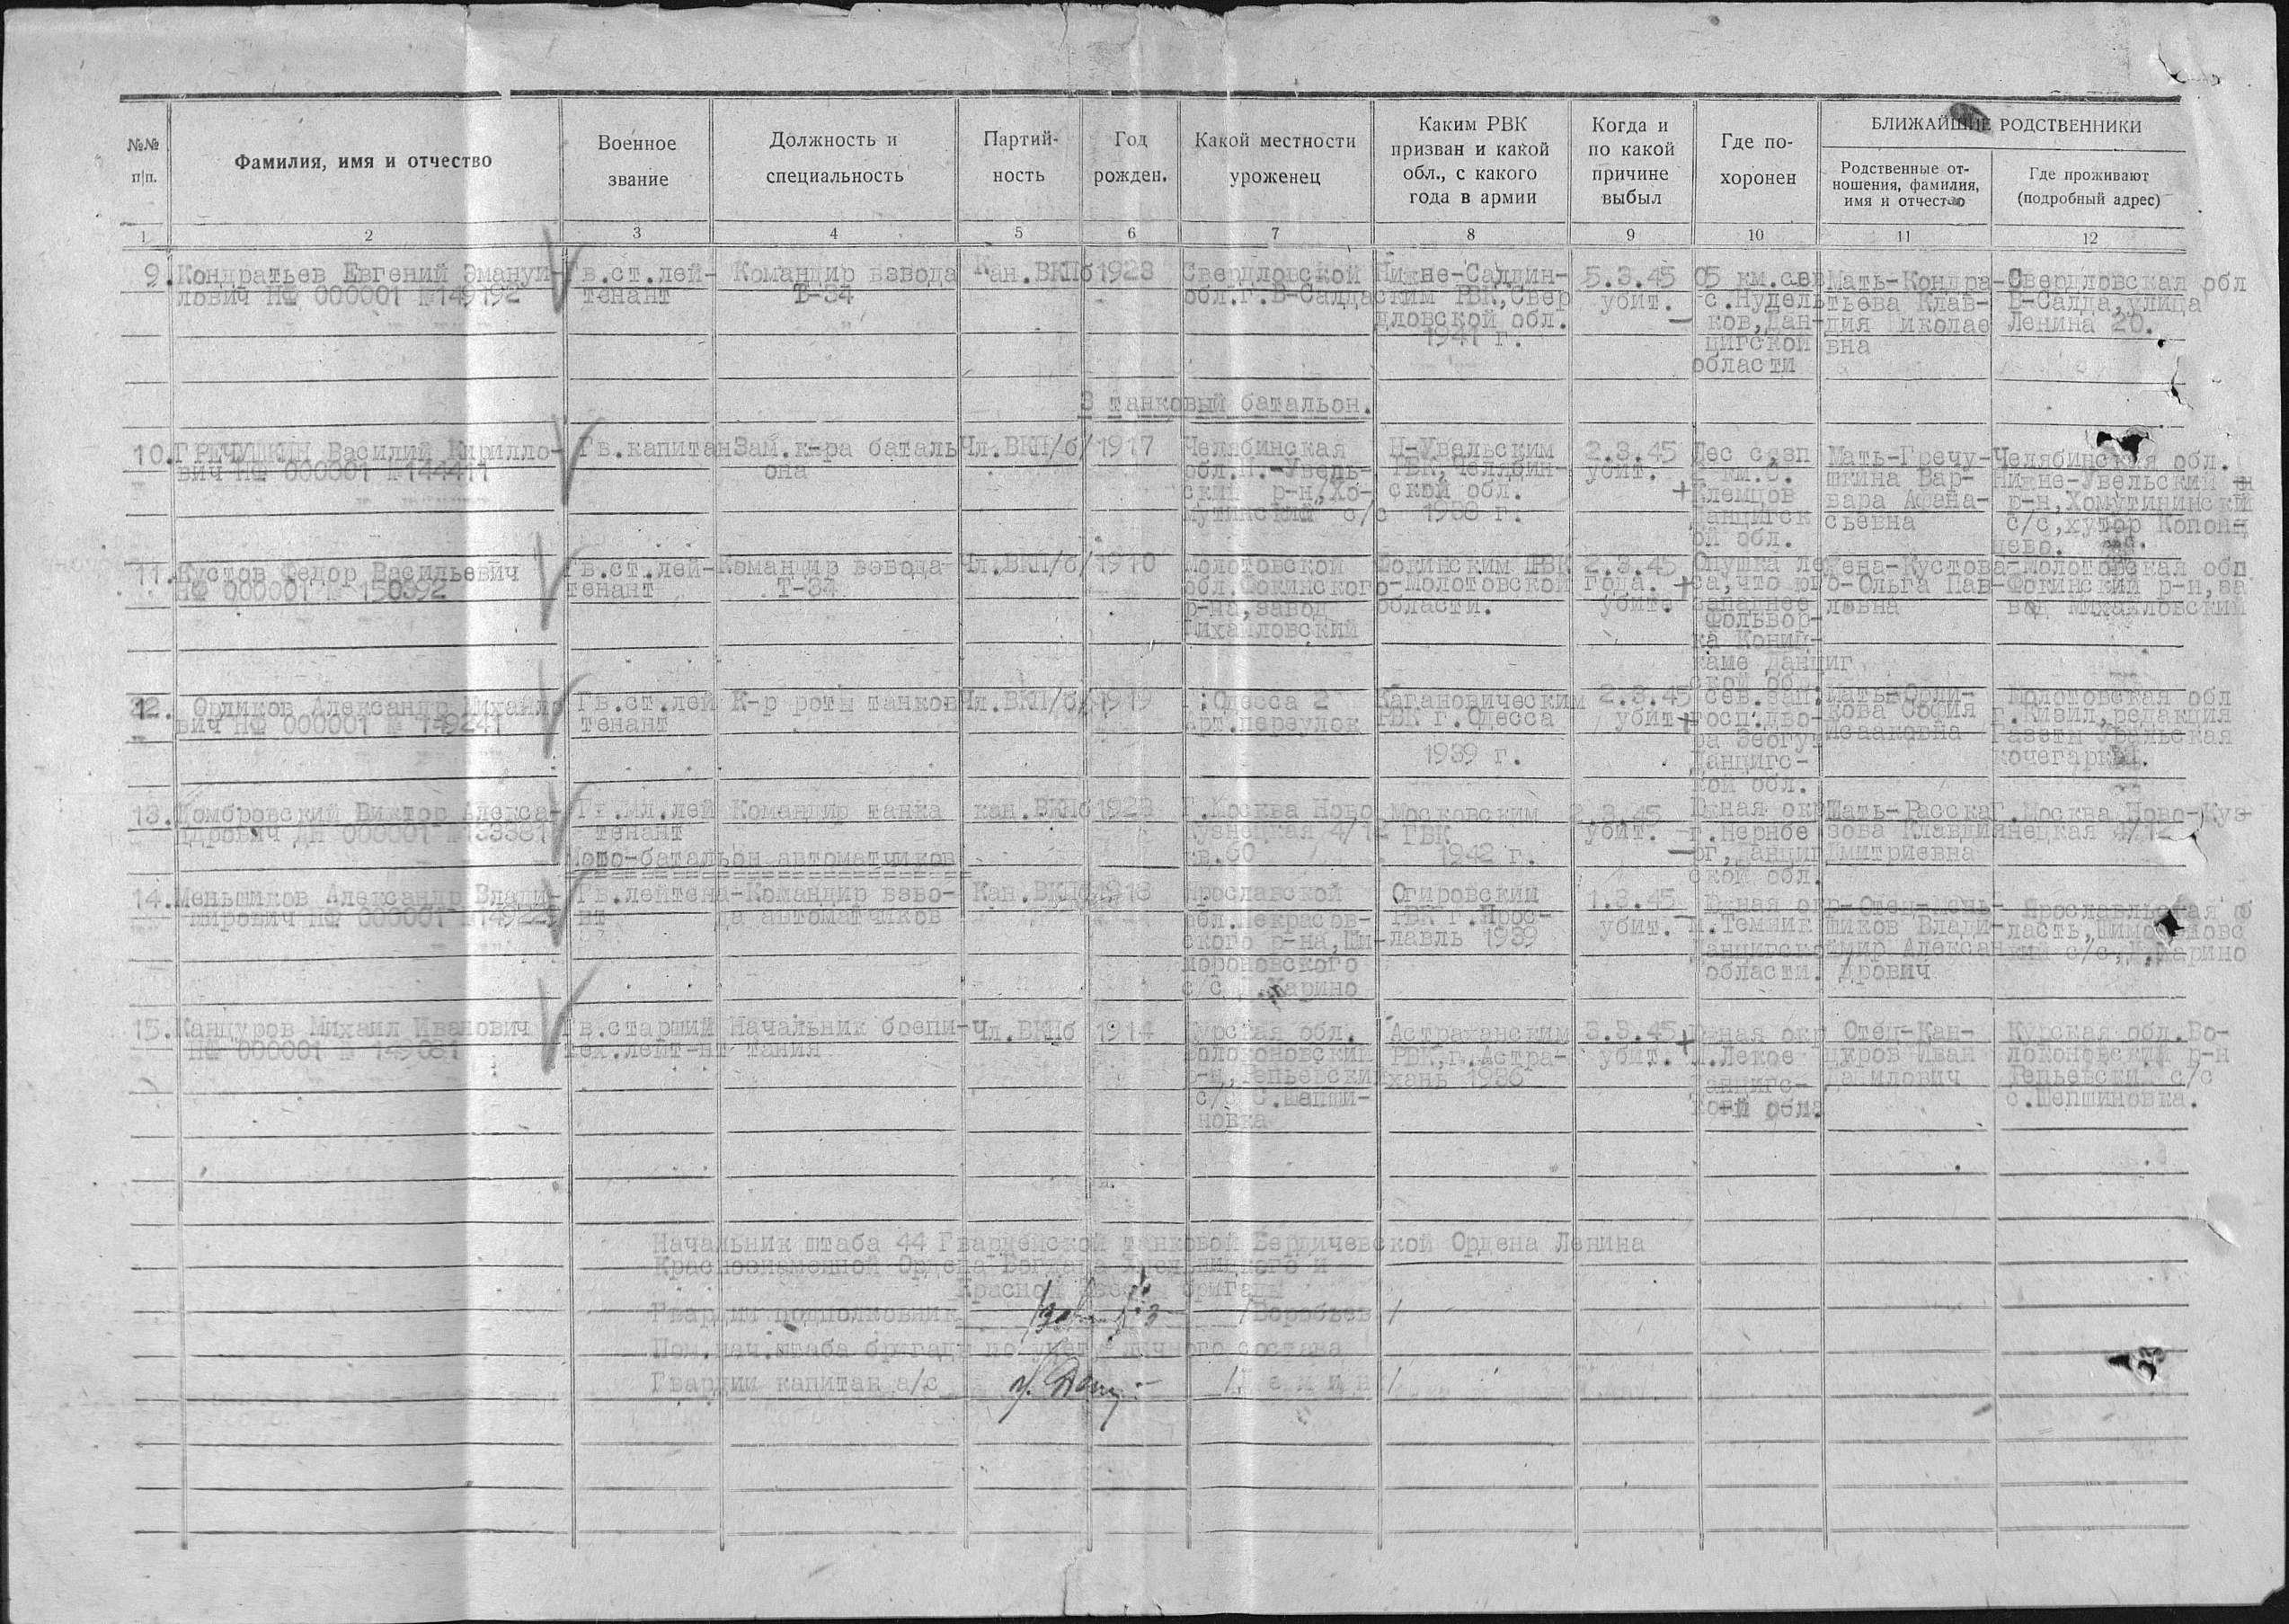 №№ п|п.
Фамилия, имя и отчество
Военное звание
Должность и специальность
Партий-ность
Год рожден.
Какой местности уроженец
Каким РВК призван и какой обл., с какого года в армии
Когда и по какой причине выбыл
Где по-хоронен
БЛИЖАЙШИЕ РОДСТВЕННИКИ
Родственные от-ношения, фамилия, имя и отчество
Где проживают (подробный адрес)
1 2 3 4 5 6 7 8 9 10 11 12
9. Кондратьев Евгений Эмануи-
лович НФ 000001 №149192
Гв.ст.лей-
тенант
Командир взвода
Т-34
Кан.ВКПб
1923
Свердловской
обл.г.В-Салда
Нижне-Салдин-
ским РВК, Свер
дловской обл.
1941 г.
5.3.45
убит.
05 км.сев
с.Нудель
ков, Дан-
цигской
области
Мать-Кондра-
тьева Клав-
дия Николае
вна
Свердловская обл
В-Салда, улица
Ленина 20.
3 танковый батальон.
10. ГРЕЧУШКИН Василий Кирилло-
вич НФ 000001 №144411
Гв.капитан
Зам.к-ра баталь
она
Чл.ВКП/б/
1917
Челябинская
обл.Н.-Увель-
ский р-н, Хо-
мутинский с/с
Н-Увельским
РВК, Челябин-
ской обл.
1938 г.
2.3.45
убит.
Лес с.вп
км.с.
Клемцов
Данцигск
ой обл.
Мать-Гречу-
шкина Вар-
вара Афана-
сьевна
Челябинская обл.
Нижне-Увельский
р-н, Хомутининский
с/с, хутор Копон
цево.
11. Кустов Федор Васильевич
НФ 000001 № 150392
Гв.ст.лей-
тенант
Командир взвода
Т-34
Чл.ВКП/б/
1910
Молотовской
обл.Фокинского
р-на, завод
Михайловский
Фокинским РВК
Молотовской
области.
2.3.45
года.
убит.
Опушка ле
са, что юго-
западнее
Фольвор-
ка Коний-
каме Данциг
ской обл.
Жена-Кустова
Ольга Пав
ловна
Молотовская обл
Фокинский р-н, за
вод Михайловский
12. Орликов Александр Михайло
вич НФ 000001 № 149241
Гв.ст.лей
тенант
К-р роты танков
Чл.ВКП/б/
1919
г.Одесса 2
Арт.переулок
Кагановическим
РВК г.Одесса
1939 г.
2.3.45
убит
сев.зап.
госп.дво-
ра
Данцигс-
кой обл.
Мать-Орли-
кова София
Исааковна
Молотовская обл
г.Кизил, редакция
газеты Уральская
кочегарка.
13. Домбровский Виктор Алекса-
ндрович ДН 000001 №133381
Гв.мл.лей
тенант
Командир танка
кан.ВКПб
1923
Г.Москва Ново
кузнецкая 4/12
кв.60
Московским
ГВК
1942 г.
2.3.45
убит.
Южная окр
г.Нернбе
рг, Данциг
ской обл.
Мать-Расска
зова Клавдия
Дмитриевна
Г.Москва Ново-Куз-
нецкая 4/12
Мото-батальон автоматчиков
14. Меньшиков Александр Влади-
мирович НФ 000001 №
Гв.лейтена-
нт
Командир взво-
да автоматчиков
Кан.ВКПб
1918
Ярославской
обл.Некрасов-
ского р-на, Ши-
мороновского
с/с Харино
РВК г.Ярос-
лавль 1939
1.3.45
убит.
Южная окр
п.Темник
Данцигской
области.
Отец-Мень-
шиков Влади-
мир Алексан
дрович
Ярославльская о
ласть,
кий с/с,
15. Канцуров Михаил Иванович
НФ 000001 № 149081
Гв.старший
тех.лейт-нт
Начальник боепи-
тания
Чл.ВКПб
1914
Курская обл.
Волоконовский
р-н, Репьевский
с/с С.Шепши-
новка
Астраханским
РВК, г.Астра-
хань 1936
3.3.45
убит.
Южная окр
п.Лекое
Данцигс-
кой обл.
Отец-Кан-
цуров Иван
Данилович
Курская обл.Во-
локоновский р-н
Репьевский с/с
с.Шепшиновка.
Начальник штаба 44 Гвардейской танковой Бердичевской Ордена Ленина
Краснознаменной Ордена Богдана Хмельницкого и
Красной Звезды бригады
Гвардии подполковник /Воробьев/
Пом.нач.штаба бригады по учету личного состава
Гвардии капитан а/с /Демин/